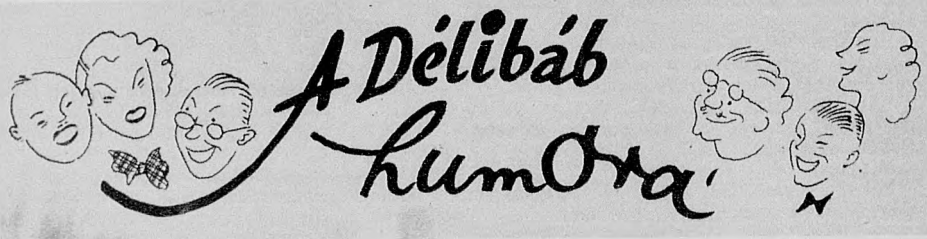 A Délibáb
humOra